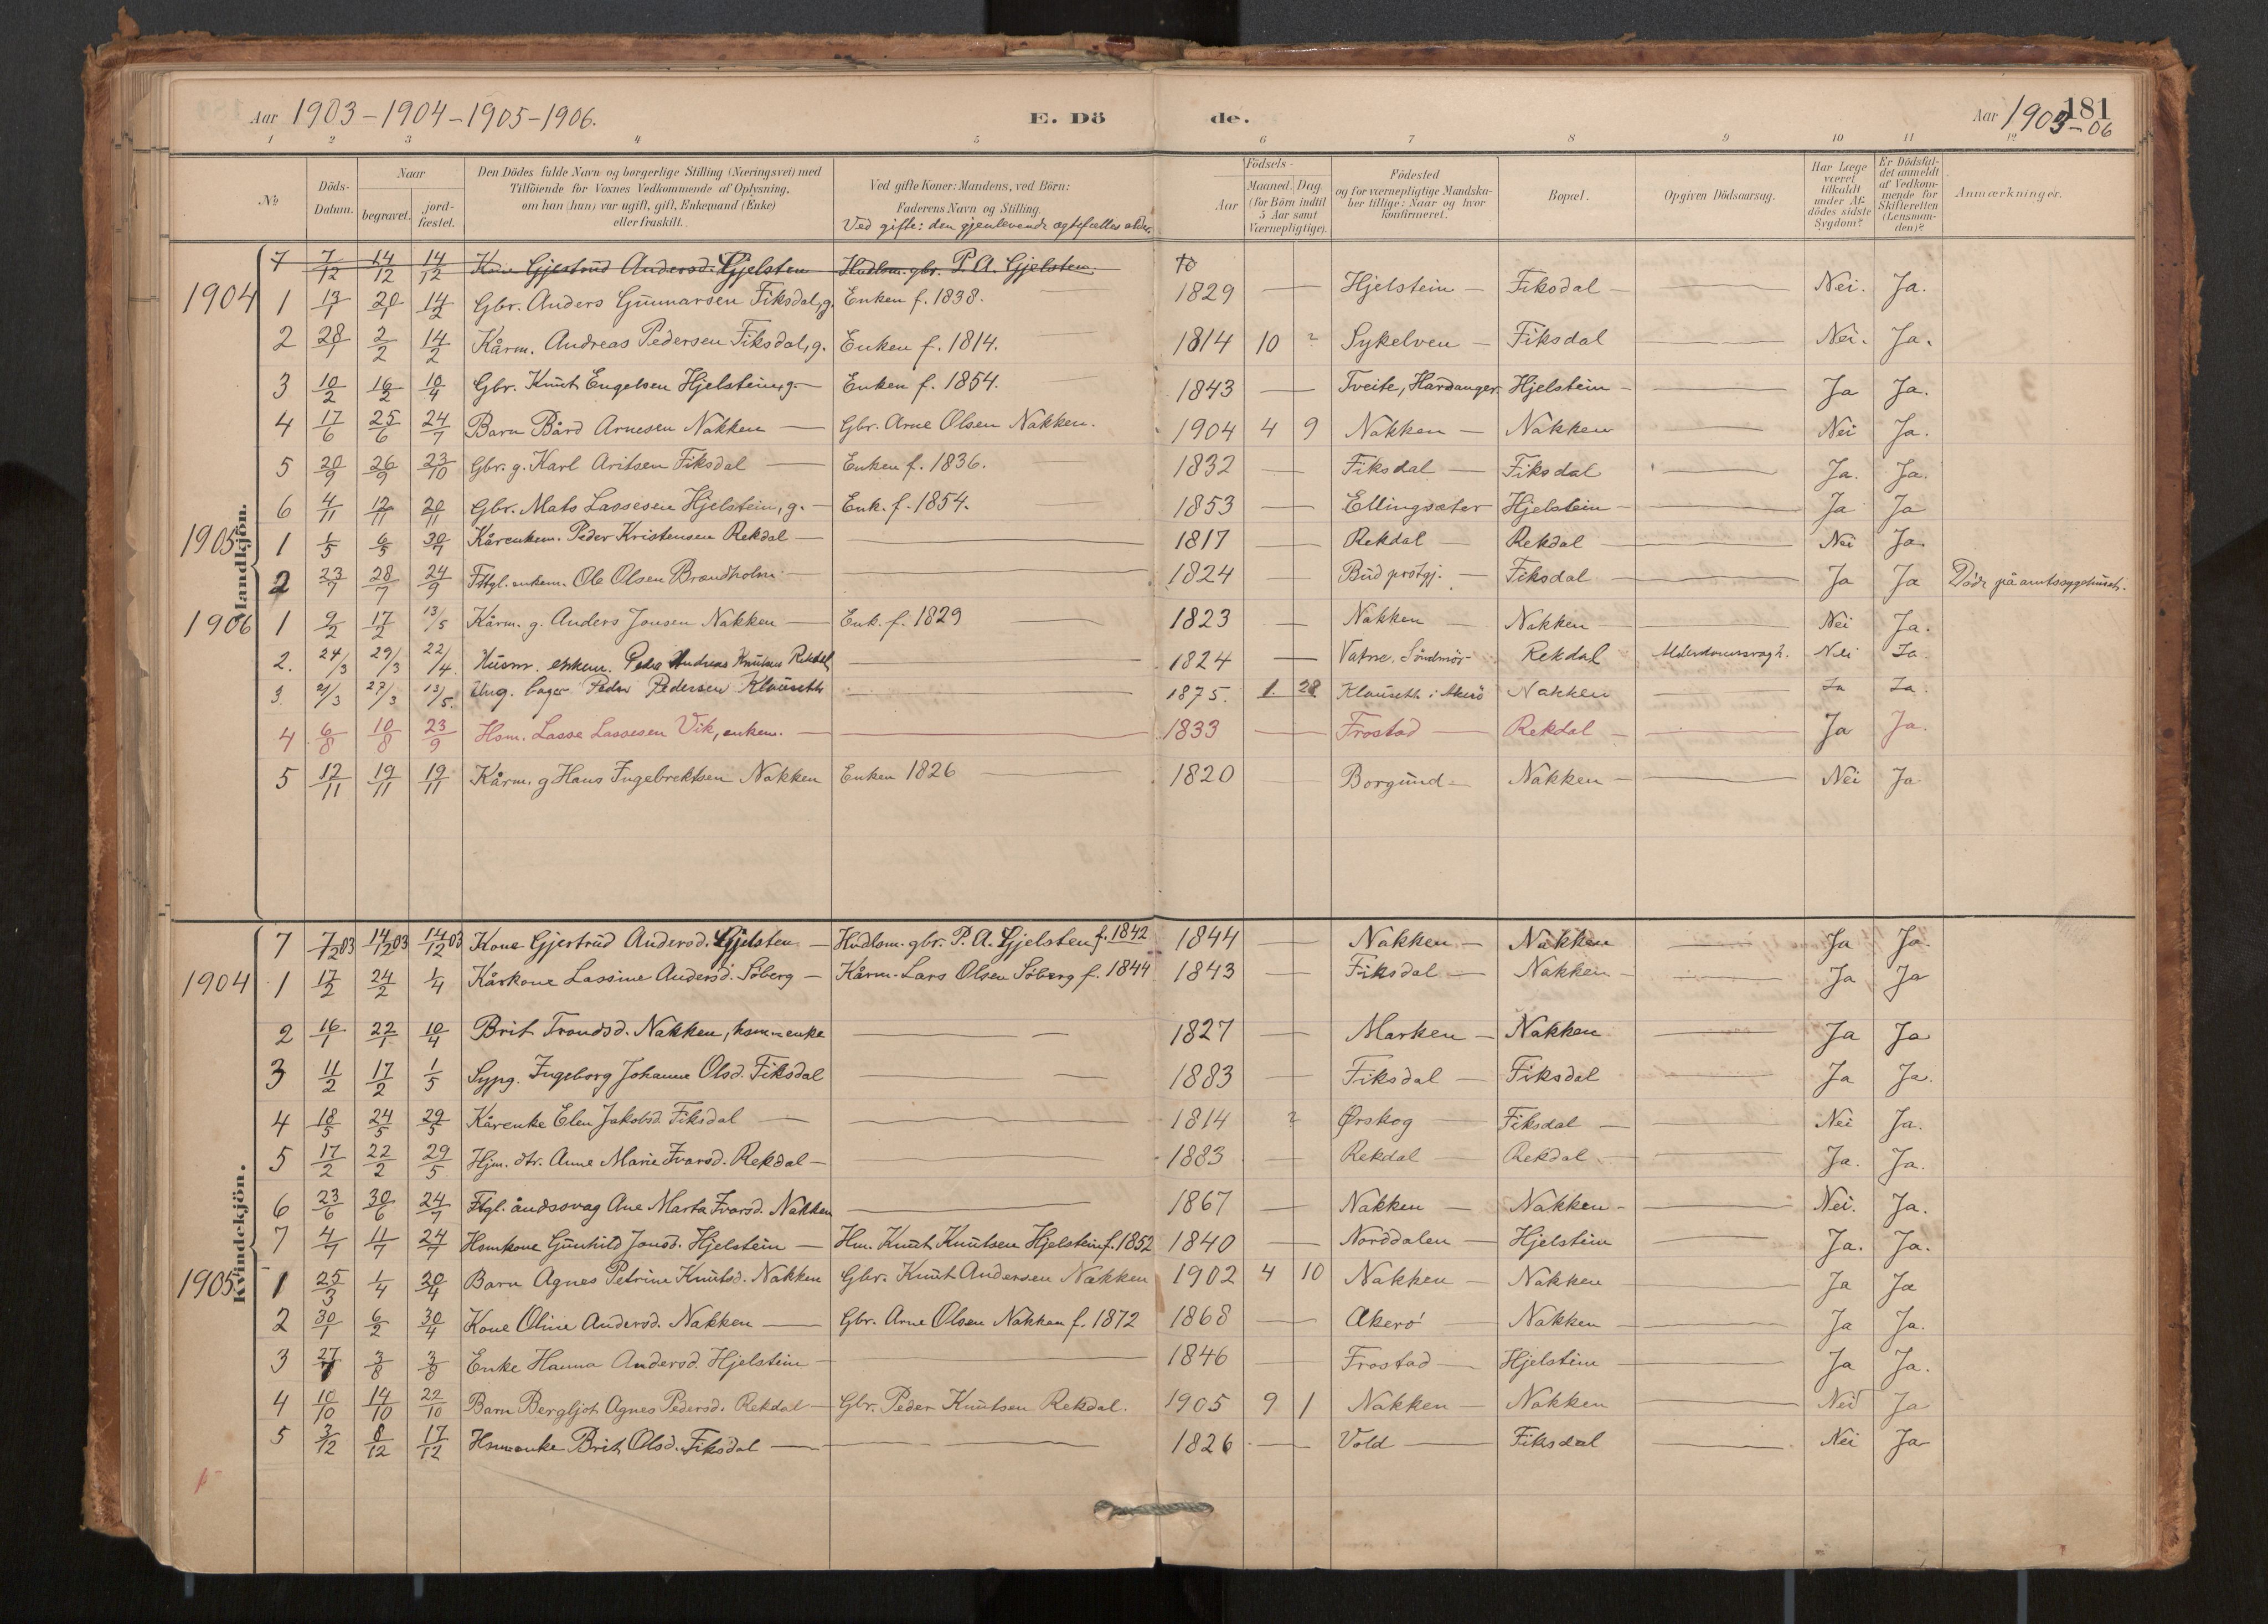 Aar 1903-1904-1905-1906. E. Dö de. Aar 1903-06 181
1 2 3 4 5 6 7 8 9 10 11 12
№ Döds-Datum. Naar begravet. jord-fæstet. Den Dödes fulde Navn og borgerlige Stilling (Næringsvei) med Tilföiende for Voxnes Vedkommende af Oplysning, om han (hun) var ugift, gift, Enkemand (Enke) eller fraskilt. Ved gifte Koner: Mandens, ved Börn: Faderens Navn og Stilling. Ved gifte: den gjenlevende ægtefælles alder. Födsels- Aar Maaned. Dag (for Börn indtil 5 Aar samt Værnepligtige). Födested og for værnepligtige Mandskaber tillige: Naar og hvor konfirmeret. Bopæl. Opgiven Dödsaarsag. Har Læge været tilkaldt under Afdödes sidste Sygdom? Er Dödsfaldet anmeldt af Vedkommende for Skifteretten (Lensmanden)? Anmærkninger.
Mandkjön.
7 7/12 14/12 14/12 Kone Gjertrud Andersd. Gjelsten Hudlsm. gbr. P. A. Gjelsten.
1904 1 13/1 20/1 14/2 Gbr. Anders Gunnarsen Fiksdal, g. Enken f. 1838. 1829 — Hjelstein — Fiksdal — Nei. Ja.
2 28/1 2/2 14/2 Kårm. Andreas Pedersen Fiksdal, g. Enken f. 1814. 1814 10 ? Sykelven — Fiksdal — Nei. Ja.
3 10/2 16/2 10/4 Gbr. Knut Engelsen Hjelstein, g. — Enken f. 1854. 1843 — Tveite, Hardanger. Hjelstein — Ja Ja.
4 17/6 25/6 24/7 Barn Bård Arnesen Nakken — Gbr. Arne Olsen Nakken. 1904 4 9 Nakken — Nakken — Nei Ja.
5 20/9 26/9 23/10 Gbr. g. Karl Aritsen Fiksdal — Enken f. 1836. 1832 — Fiksdal — Fiksdal — Ja. Ja.
6 4/11 12/11 20/11 Gbr. Mats Lassesen Hjelstein, g. — Enk. f. 1854. 1853 — Ellingsæter Hjelstein — Ja Ja
1905 1 1/5 6/5 30/7 Kårenkem. Peder Kristensen Rekdal — 1817 — Rekdal — Rekdal — Nei Ja.
2 23/7 28/7 24/9 Fttgl. enkem. Ole Olsen Brandholm — 1824 — Bud prstgj. — Fiksdal — Ja Ja Döde på amtssygehuset.
1906 1 9/2 17/2 13/5 Kårm. g. Anders Jonsen Nakken — Enk. f. 1829 — 1823 — Nakken — Nakken — Nei Ja.
2. 24/3 29/3 22/4. Husm. enkem. Peder Andreas Knutsen Rekdal — 1824 — Vatne, Söndmör — Rekdal Alderdomssvagh. Nei Ja.
3. 21/3 27/3 13/5. Ung. bager Peder Pedersen Klauseth — 1875. 1. 28. Klauseth i Akerö Nakken — Ja Ja.
4 6/8 10/8 23/9 Hsm. Lasse Lassesen Vik, enkem. — 1833 — Frostad — Rekdal — Ja Ja.
5 12/11 19/11 19/11 Kårm. g Hans Ingebrektsen Nakken Enken 1826 — 1820 Borgund — Nakken — Nei Ja
Kvindekjön.
7 7/12 03 14/12 03 14/12 03 Kone Gjertrud Andersd. Gjelsten — Hudlsm. gbr. P. A. Gjelsten f. 1842 1844 — Nakken — Nakken — Ja Ja.
1904 1 17/2 24/2 1/4 Kårkone Lassine Andersd. Söberg — Kårm. Lars Olsen Söberg f. 1844 1843 — Fiksdal — Nakken — Ja Ja
2 16/1 22/1 10/4 Brit Trondsd. Nakken, hsm-enke — 1827 — Marken — Nakken — Ja Ja
3 11/2 17/2 1/5 Sypg. Ingeborg Johanne Olsd. Fiksdal — 1883 — Fiksdal — Fiksdal — Ja Ja.
4 18/5 24/5 29/5 Kårenke Elen Jakobsd. Fiksdal — 1814 ? Ørskog — Fiksdal — Nei Ja.
5 17/2 22/2 29/5 Hjm. dtr. Anne Marie Ivarsd. Rekdal — 1883 — Rekdal — Rekdal — Ja. Ja.
6 23/6 30/6 24/7 Ftgl. åndssvag Ane Marta Ivarsd. Nakken — 1867 — Nakken — Nakken — Nei. Ja.
7 4/7 11/7 24/7 Hsmkone Gunhild Jonsd. Hjelstein — Hm. Knut Knutsen Hjelstein f. 1852 1840 — Norddalen — Hjelstein — Ja. Ja.
1905 1 25/3 1/4 30/4 Barn Agnes Petrine Knutsd. Nakken Gbr. Knut Andersen Nakken 1902 4 10 Nakken — Nakken — Ja Ja
2 30/1 6/2 30/4 Kone Oline Andersd. Nakken — Gbr. Arne Olsen Nakken f. 1872 1868 — Akerö — Nakken — Ja Ja.
3 27/7 3/8 3/8 Enke Hanna Andersd. Hjelstein — 1846 Frostad — Hjelstein — Ja Ja.
4 10/10 14/10 22/10 Barn Bergljot Agnes Pedersd. Rekdal — Gbr. Peder Knutsen Rekdal. 1905 9 1 Nakken — Nakken — Nei Ja
5 3/12 8/12 17/12 Hsmenke Brit Olsd. Fiksdal — 1826 — Vold — Fiksdal — Nei Ja